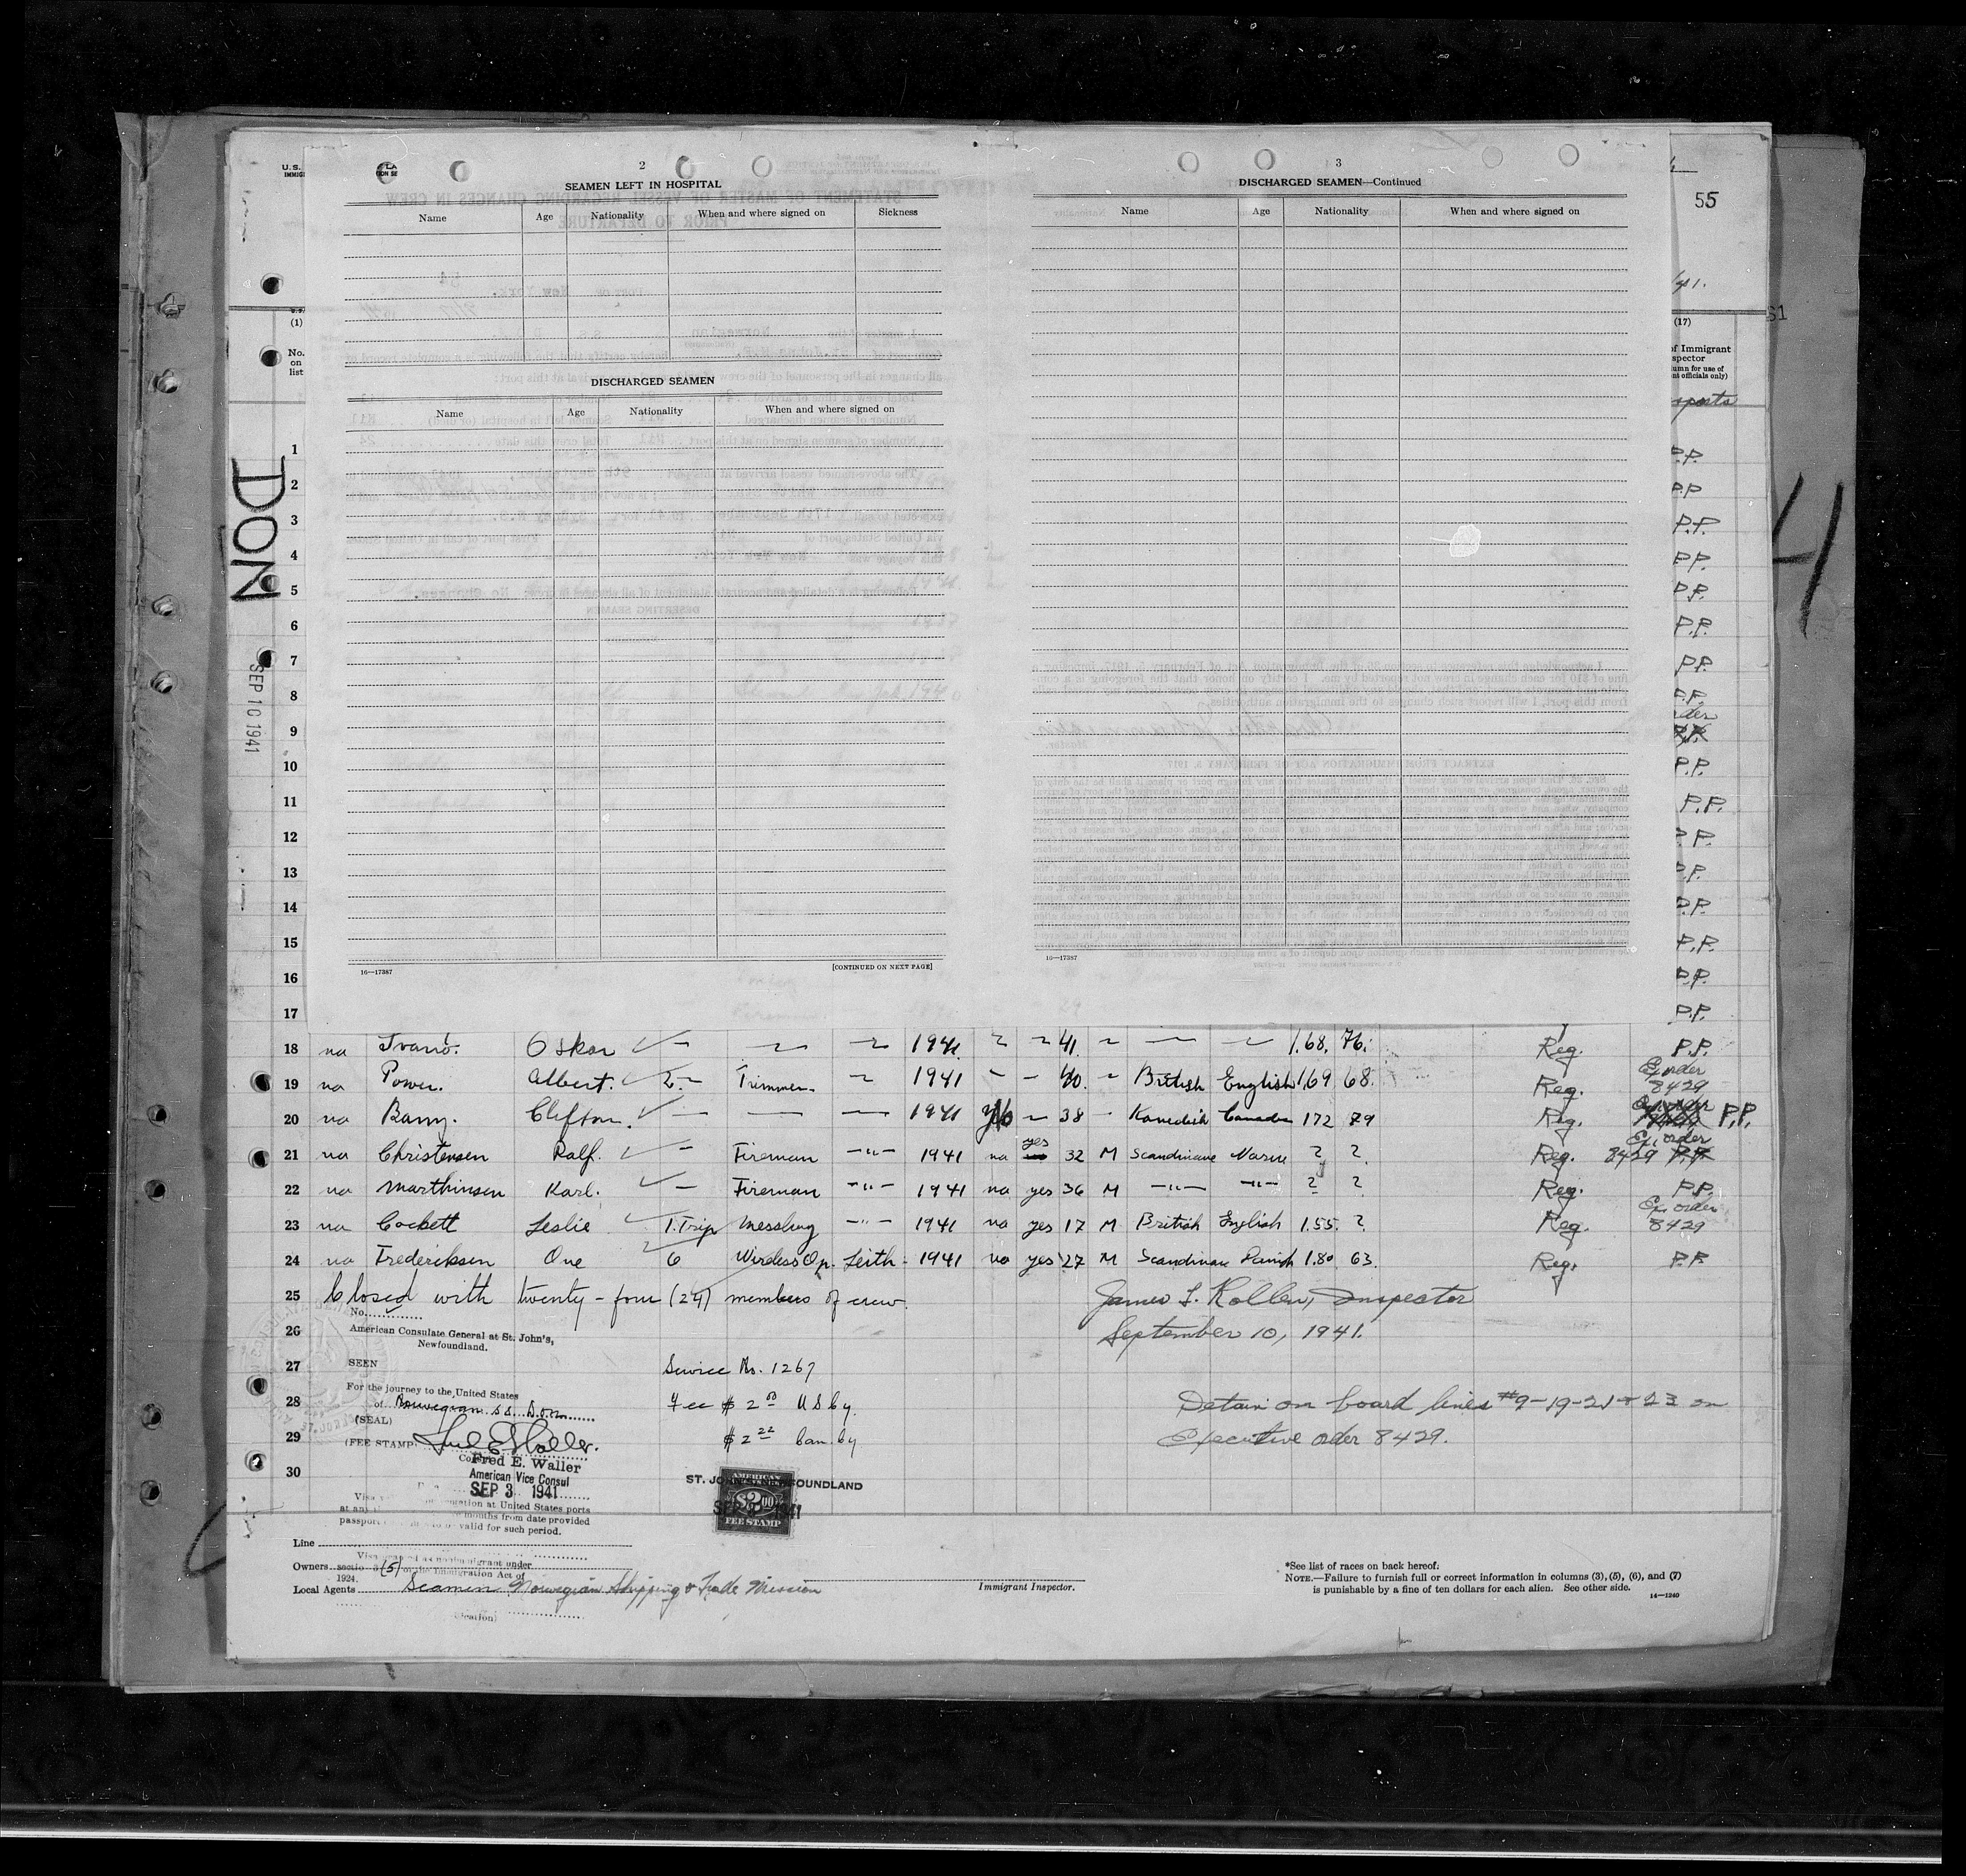 2
SEAMEN LEFT IN HOSPITAL
Name Age Nationality When and where signed on Sickness
DISCHARGED SEAMEN
Name Age Nationality When and where signed on
16—17387 [CONTINUED ON NEXT PAGE]
3
DISCHARGED SEAMEN—Continued
Name Age Nationality When and where signed on
16—17387
U.S.
55
41.
51
(1)
No. on list
(17)
of Immigrant
spector
umn for use of
nt officials only)
DON
SEP 10 1941
4
1 P.P.
2 P.P
3 P.P.
4 P.P.
5 P.P.
6 P.P.
7 P.P.
8 P.P.
9 P.P.
10 P.P.
11 P.P.
12 P.P.
13 P.P.
14 P.P.
15 P.P.
16 P.P.
17 P.P.
18 na Oskar 1941. 41. 1.68. 76. Reg. P.P.
19 na Power. Albert. 2 Trimmer 1941 40. British English 1.69 68. Reg. Ex. order 8429
20 na Barry. Clifton. 1941 38 Kanedish Canada 172 79 Reg. P.P.
21 na Christensen Ralf. Fireman —"— 1941 na yes 32 M Scandinave Norw ? ? Reg. Ex. order 8429 P.P.
22 na Marthinsen Karl. Fireman —"— 1941 na yes 36 M —"— —"— ? ? Reg. P.P.
23 na Cockett Leslie 1. Trip Messboy —"— 1941 na yes 17 M British English 1.55. ? Reg. Ex. order 8429
24 na Frederiksen Ove 6 Wireless Op. Leith 1941 na yes 27 M Scandinave Danish 1.80 63. Reg. P.P.
25 Closed with twenty-four (24) members of crew. James L. Rollen, Inspector
26 September 10, 1941.
27
28
29
30
No.
American Consulate General at St. John's,
Newfoundland.
SEEN
For the journey to the United States
of Norwegian SS. Don
(SEAL)
(FEE STAMP)
Fred E. Waller
American Vice Consul
SEP 3 1941
Service No. 1267
Fee $ 2.00 U S by
$ 2.22 Can. by
Detain on board lines #9-19-21 & 23 on
Executive order 8429.
ST. JOHN'S, NEWFOUNDLAND
AMERICAN
$2.00
FEE STAMP
at United States ports
months from date provided
valid for such period.
Line
Owners
section 3 (5) of the Immigration Act of
1924.
Local Agents Seamen Norwegian Shipping & Trade Mission
Immigrant Inspector.
*See list of races on back hereof.
NOTE.—Failure to furnish full or correct information in columns (3), (5), (6), and (7)
is punishable by a fine of ten dollars for each alien. See other side.
14—1240